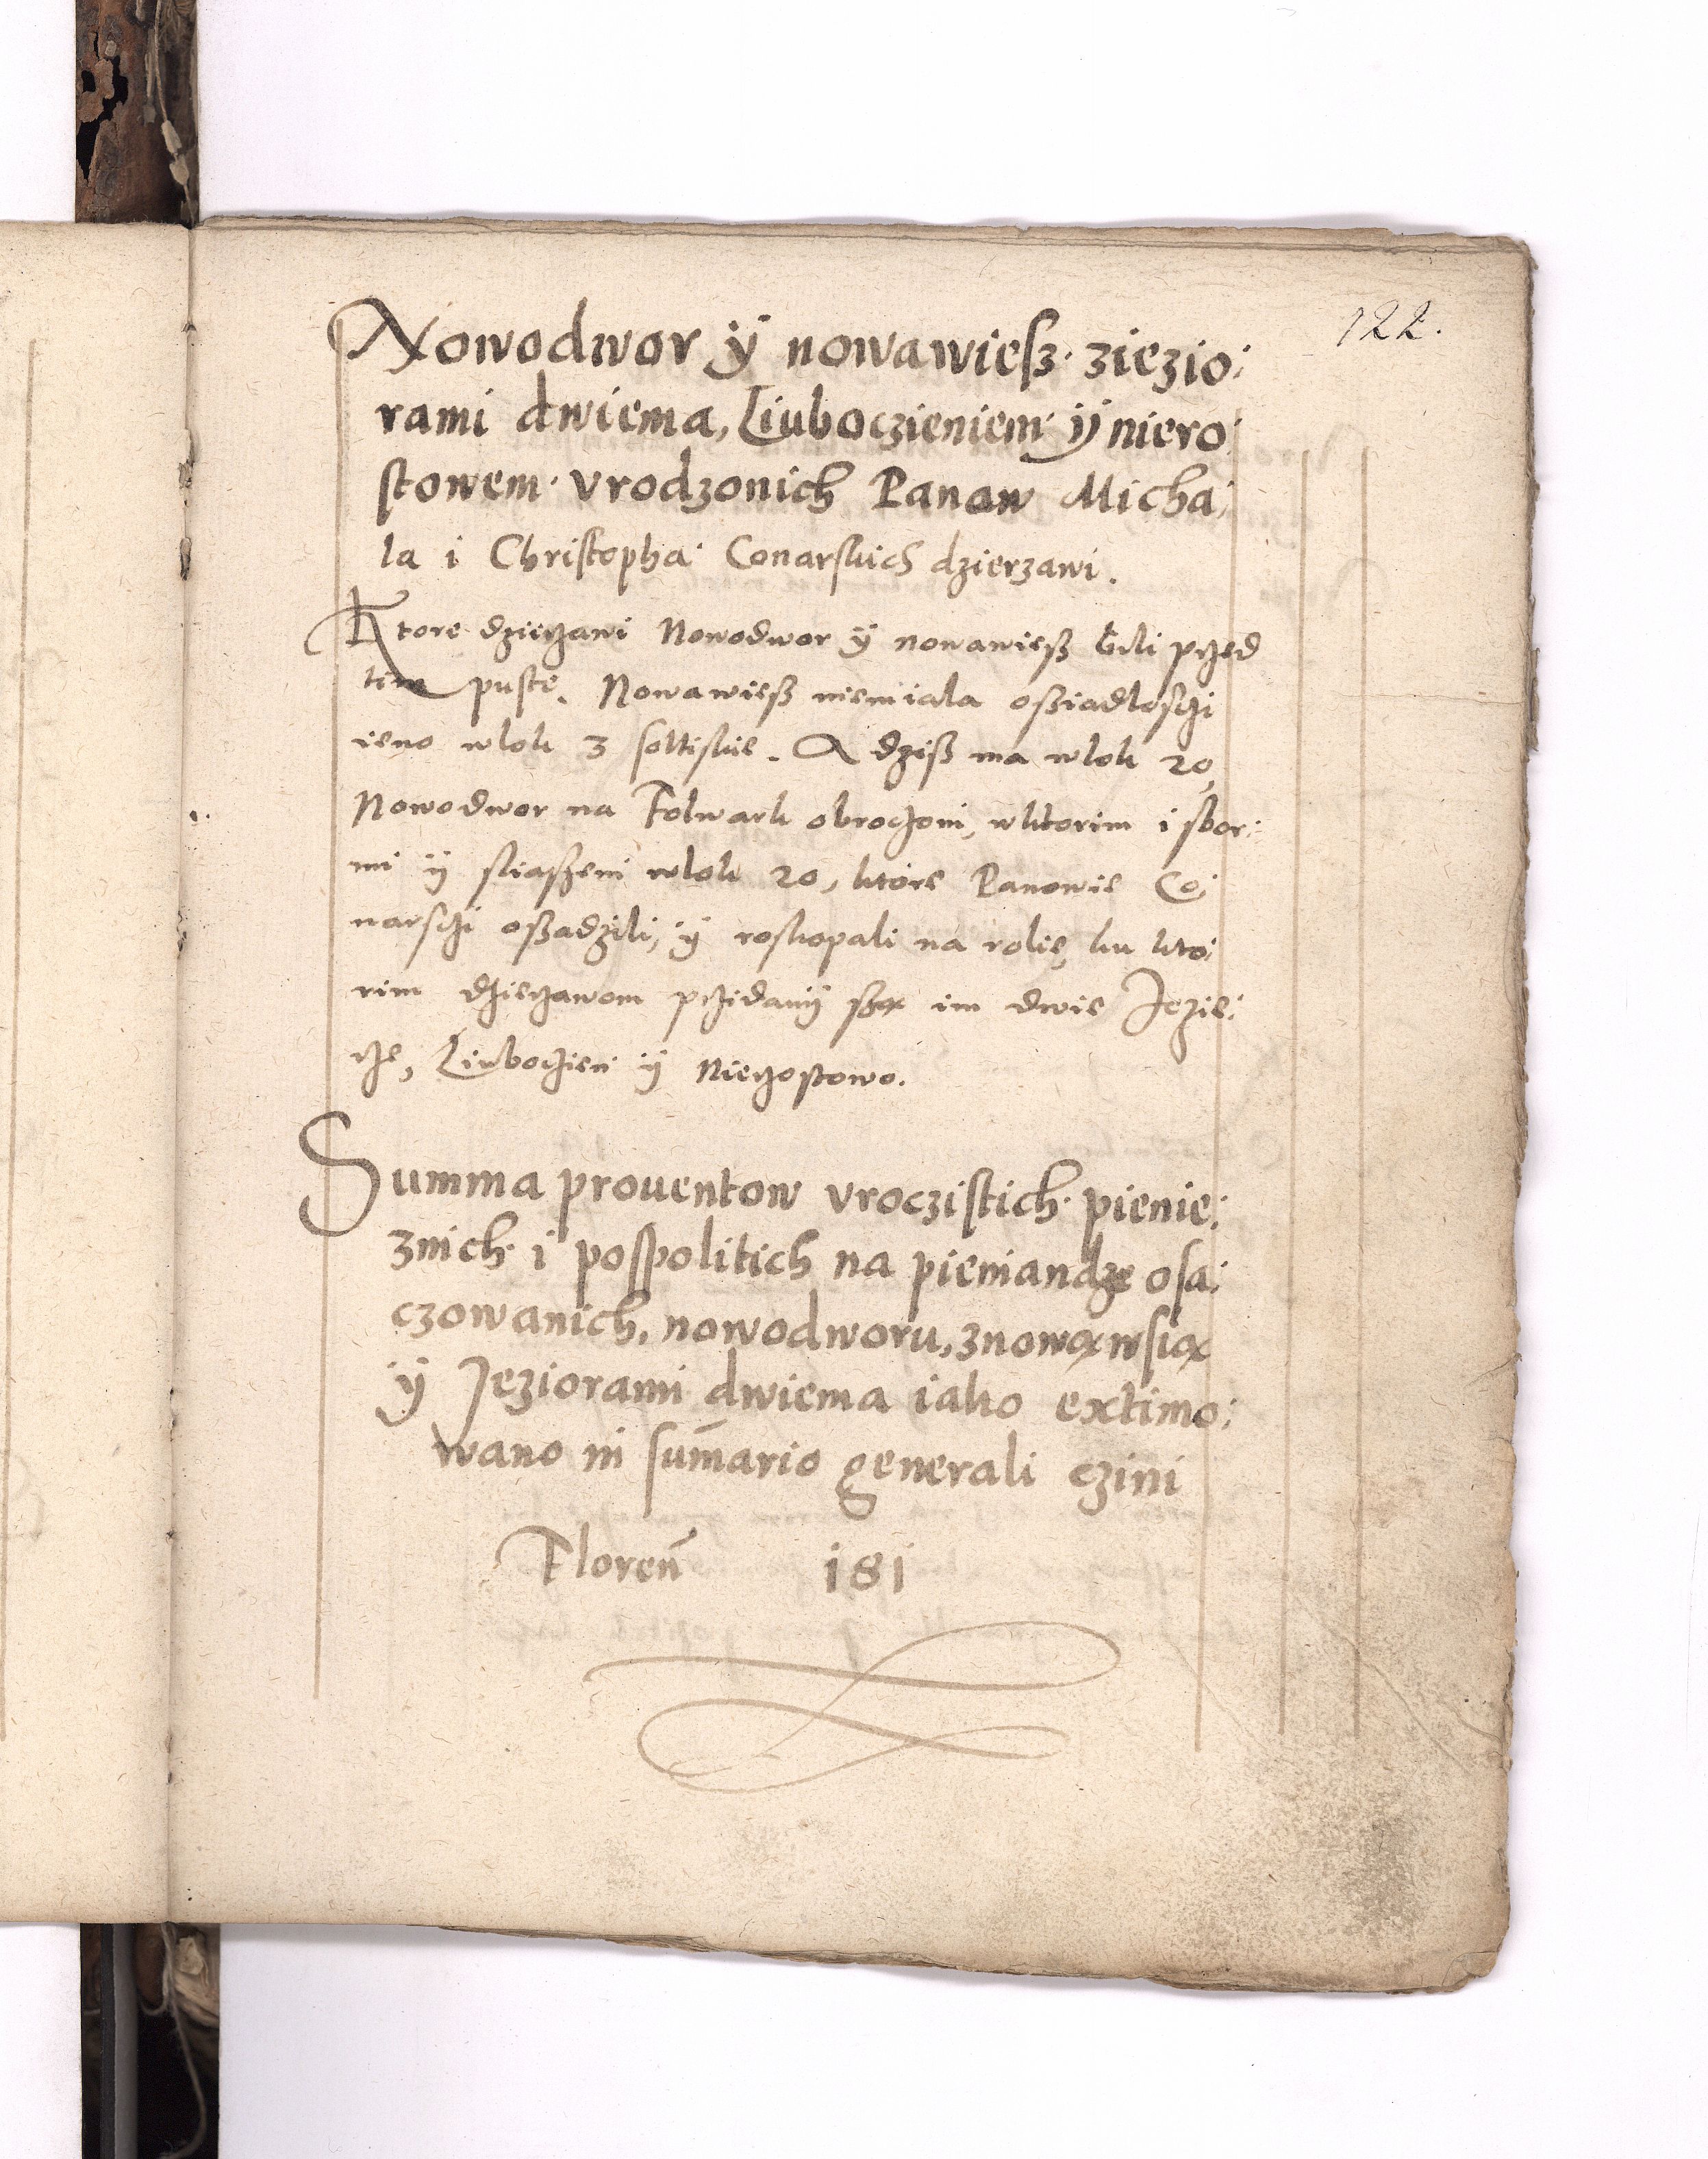 122.
Nowodwor ÿ nowawiesz· ziezio:
rami dwiema, Liuboczieniem· ÿ niero:
stowem· vrodzonich Panow Micha:
la i Christopha· Conarskich dzierzawi.
Ktore dzierzawi Nowodwor ÿ nowawiesz bili przed
tim puste. Nowawiesz niemiala osziadloschi
ieno wlok 3 soltiskie. A dzisz ma wlok 20,
Nowodwor na Folwark obroczoni, wktorim i sbor:
mi ÿ wlok 20, ktore Panowie Co:
narschi oszadzili, ÿ roskopali na rolie, ku kto:
rim dzierzawom przidanÿ są im dwie Jezie:
rze, Liuboczien ÿ Nierostowo.
Summa prouentow vroczistich· pienie:
znich· i pospolitich na pieniandze osa:
czowanich, nowodworu, znową wsią
ÿ Jeziorami dwiema iako extimo:
wano in sum̄ario generali czini
Floren̄ 181